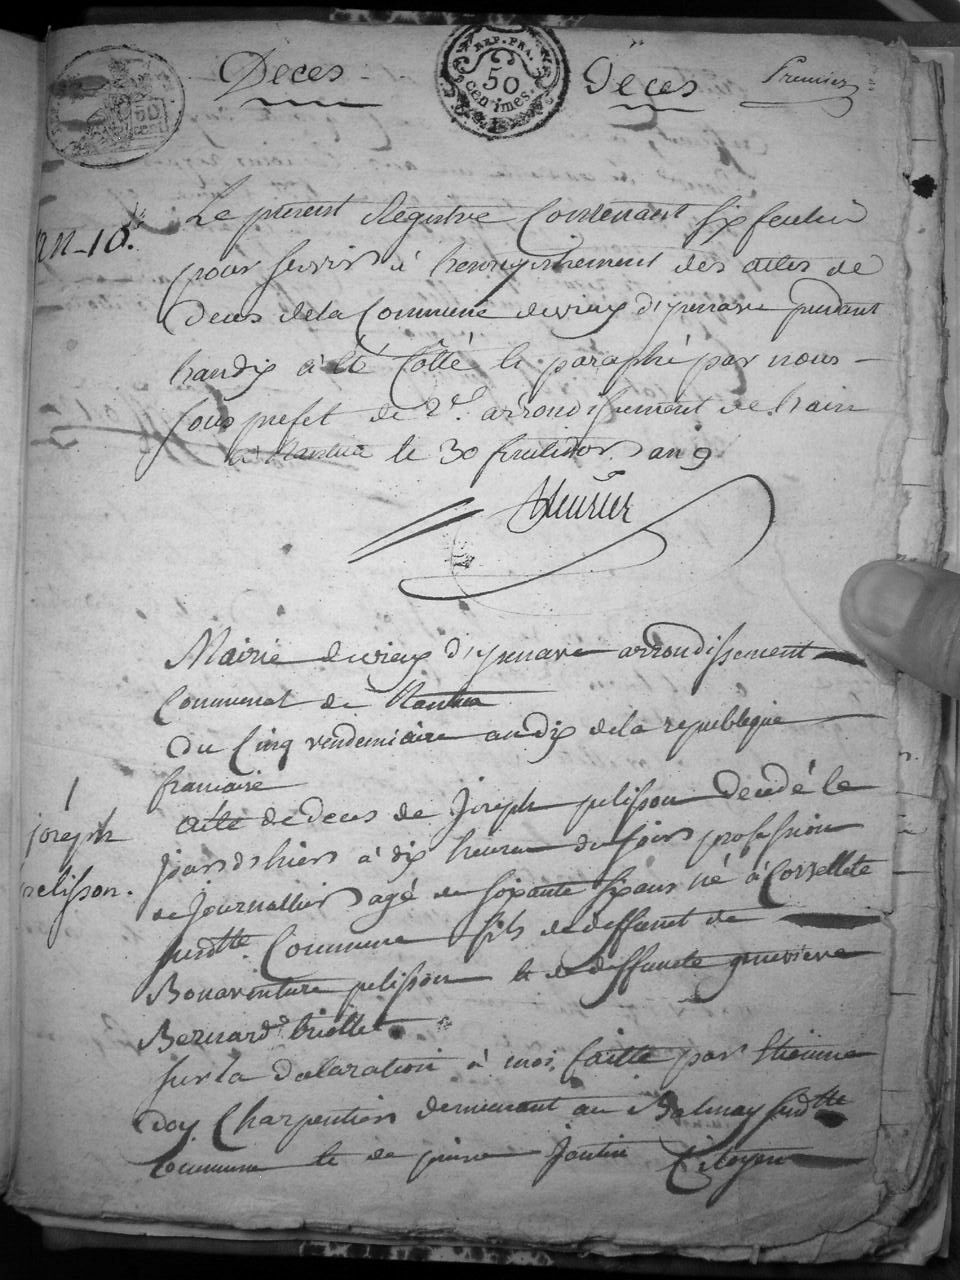 Deces
REP. FRA.
50
centimes.
Deces
Premier
50
cent
an-10.
Le présent Registre Contenant six feulies
pour servir à henregistrement des actes de
Deces de la Commune de vieux d'ysenave pendant
handix à été Cotté & paraphé par nous
sous prefet du 2e. arrondissement de hain
à Nantua le 30 fructidor an 9
Mairie de vieux d'ysenave arrondissement
Communal de Nantua
Du Cinq vendemiaire an dix de la republique
francaise
1
joseph
pelisson.
acte de deces de Joseph pelisson Decedé le
jour d'hier à dix heures du soir profession
de Journallier agé de soixante six ans né à Corvellete
susdtte Commune fils de deffunt de
Bonaventure pelisson & de deffuncte genevieve
Bernard
sur la declaration à moi faitte par Etienne
doy Charpentier demeurant au Balmay susdtte
Commune & de pierre Citoyen